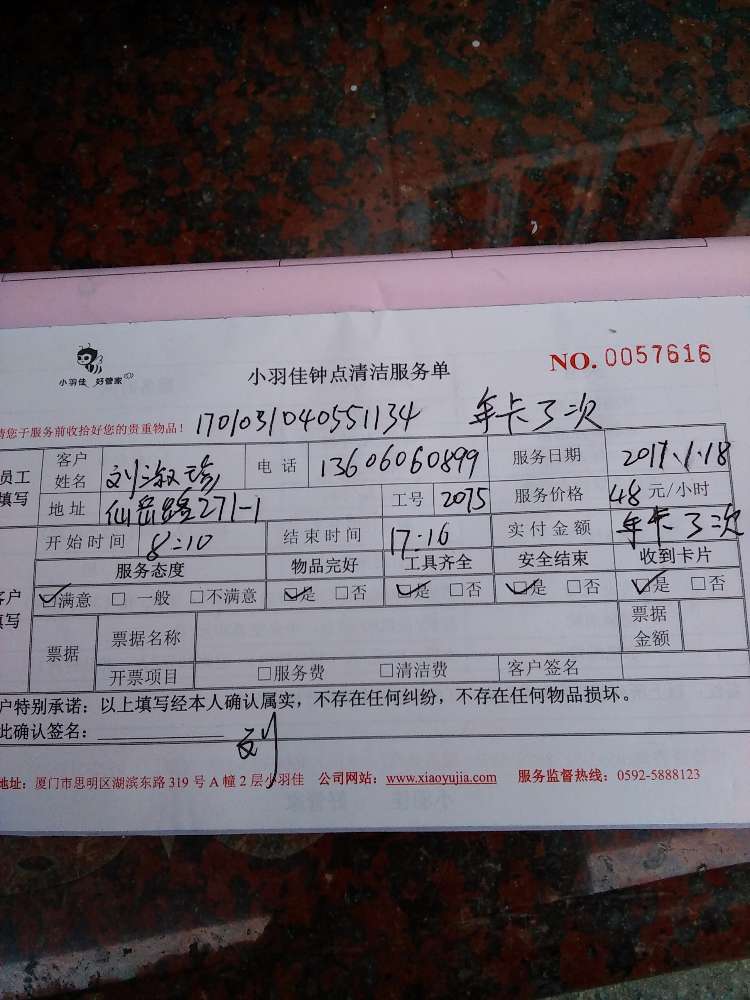 小羽佳 好管家
小羽佳钟点清洁服务单
NO. 0057616
请您于服务前收拾好您的贵重物品! 1701031040551134 年卡3次
员工填写 客户姓名 刘淑珍 电话 13606060899 服务日期 2017.1.18
地址 仙岳路271-1 工号 2075 服务价格 48元/小时
客户填写 开始时间 8:10 结束时间 17:10 实付金额 年卡3次
服务态度 物品完好 工具齐全 安全结束 收到卡片
☑满意 □一般 □不满意 ☑是 □否 ☑是 □否 ☑是 □否 ☑是 □否
票据 票据名称 票据金额
开票项目 □服务费 □清洁费 客户签名
户特别承诺：以上填写经本人确认属实，不存在任何纠纷，不存在任何物品损坏。
此确认签名： 刘
地址：厦门市思明区湖滨东路 319 号 A 幢 2 层小羽佳 公司网站：www.xiaoyujia.com 服务监督热线：0592-5888123